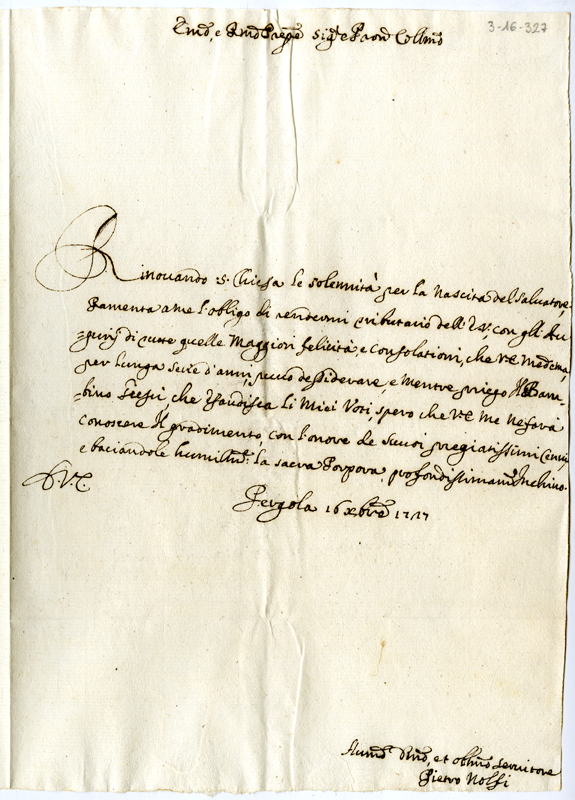 3-16-327
Emo, e Rmo Prēpe Sige e Pron Collmo
Rinouando S. Chiesa le solennità per la Nascita del Saluatore,
Ramenta a me l'obligo di rendermi tributario dell' V.E. con gli Au-
=gurij di tutte quelle Maggiori felicità e Consolationi, che V.E. Medema,
per lunga serie d'anni, può desiderare, e mentre priego Il Bam-
=bino Giesù che esaudisca li Miei Voti, spero che V.E. me ne farà
conoscere Il gradimento, con l'onore de suoi pregiatissimi Cenni,
e baciandole humilmte la sacra Porpora, profondissimamte Inchino.
D V.E.
Pergola 16 Xbre 1717
Humo Deuo, et obllmo seruitore
Pietro Nolfi